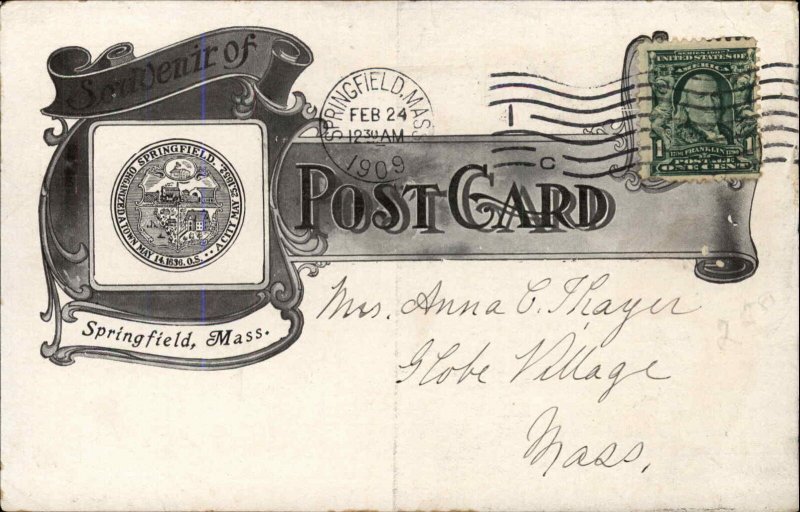 Souvenir of
SPRINGFIELD.
ORGANIZED A TOWN MAY 14, 1636, O.S.
A CITY MAY 25, 1852.
Springfield, Mass.
SPRINGFIELD, MASS.
FEB 24
12 30 AM
1909
1
C
POST CARD
SERIES 1902
UNITED STATES OF
AMERICA
1
FRANKLIN
1
POSTAGE
ONE CENT
Mrs. Anna C. Thayer
Globe Village
Mass.